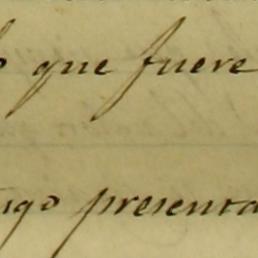 que fuere
presenta